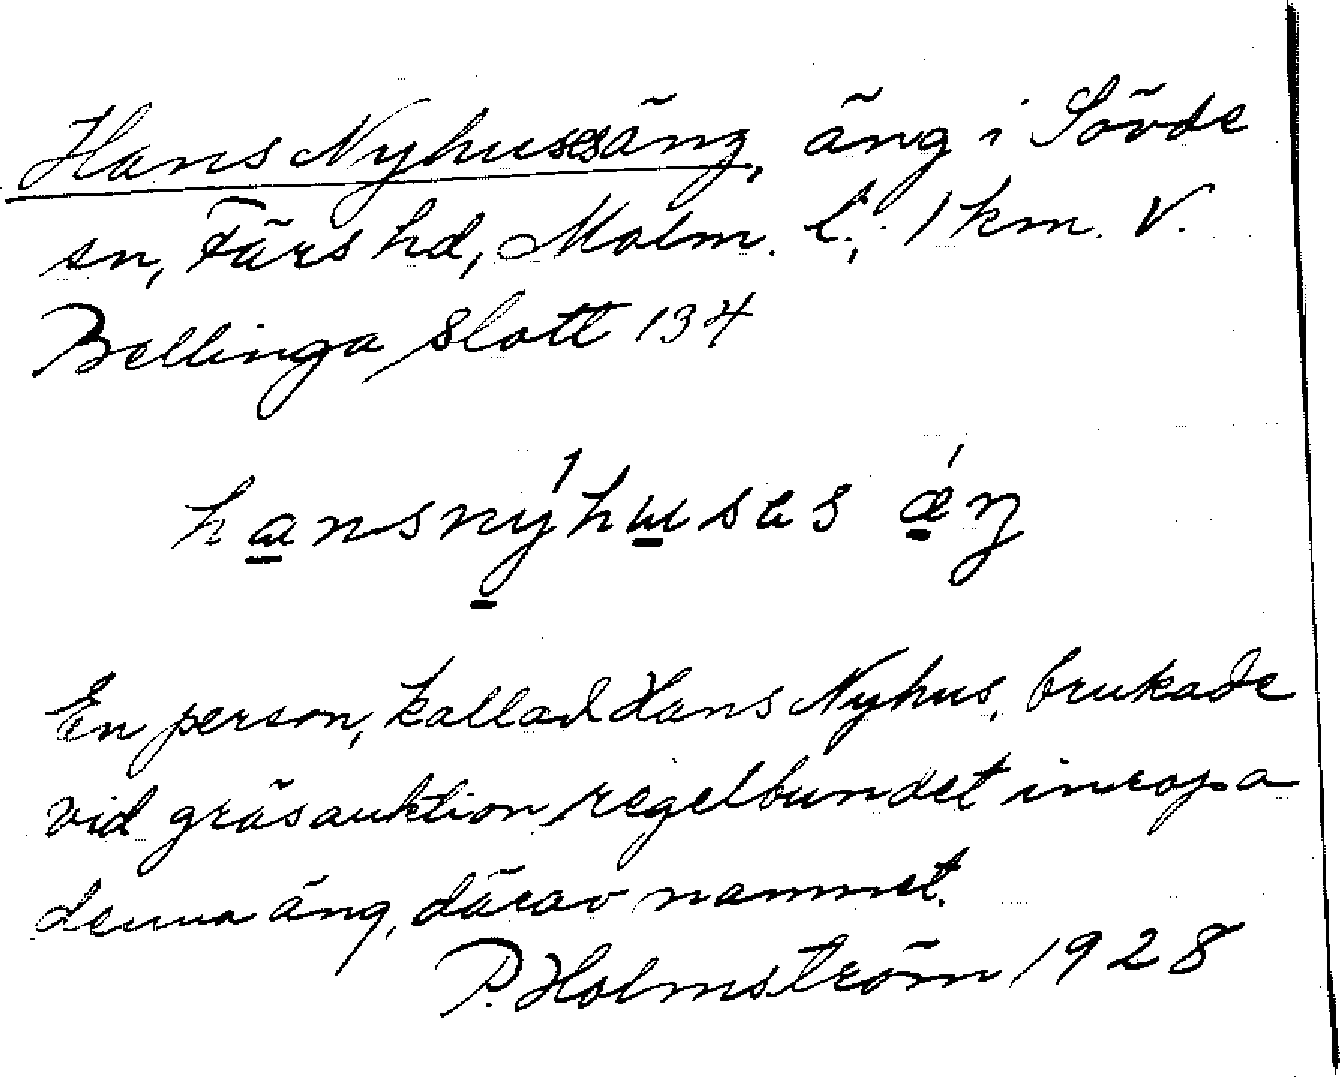 Hans Nyhusesäng, äng i Sövde
sn, Färs hd, Malm. l., 1 km. V.
Bellinga slott 134
hansnýhuses ǽŋ
En person, kallad Hans Nyhus, brukade
vid gräsauktion regelbundet inropa
denna äng, därav namnet.
P. Holmström 1928